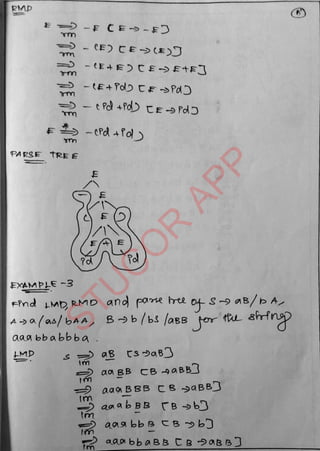 RMD
E ⇒rm -E [E→-E]
⇒rm -(E) [E→(E)]
⇒rm -(E+E) [E→E+E]
⇒rm -(E+id) [E→id]
⇒rm -(id+id) [E→id]
E *⇒rm -(id+id)
PARSE TREE
E
- E
( E )
E + E
id id
STUCOR APP
EXAMPLE-3
Find LMD, RMD and parse tree of S→aB/bA,
A→a/as/bAA, B→b/bs/aBB for the string
aaabbabbba.
LMD S ⇒lm aB [S→aB]
⇒lm aaBB [B→aBB]
⇒lm aaaBBB [B→aBB]
⇒lm aaabBB [B→b]
⇒lm aaabbB [B→b]
⇒lm aaabbaBB [B→aBB]